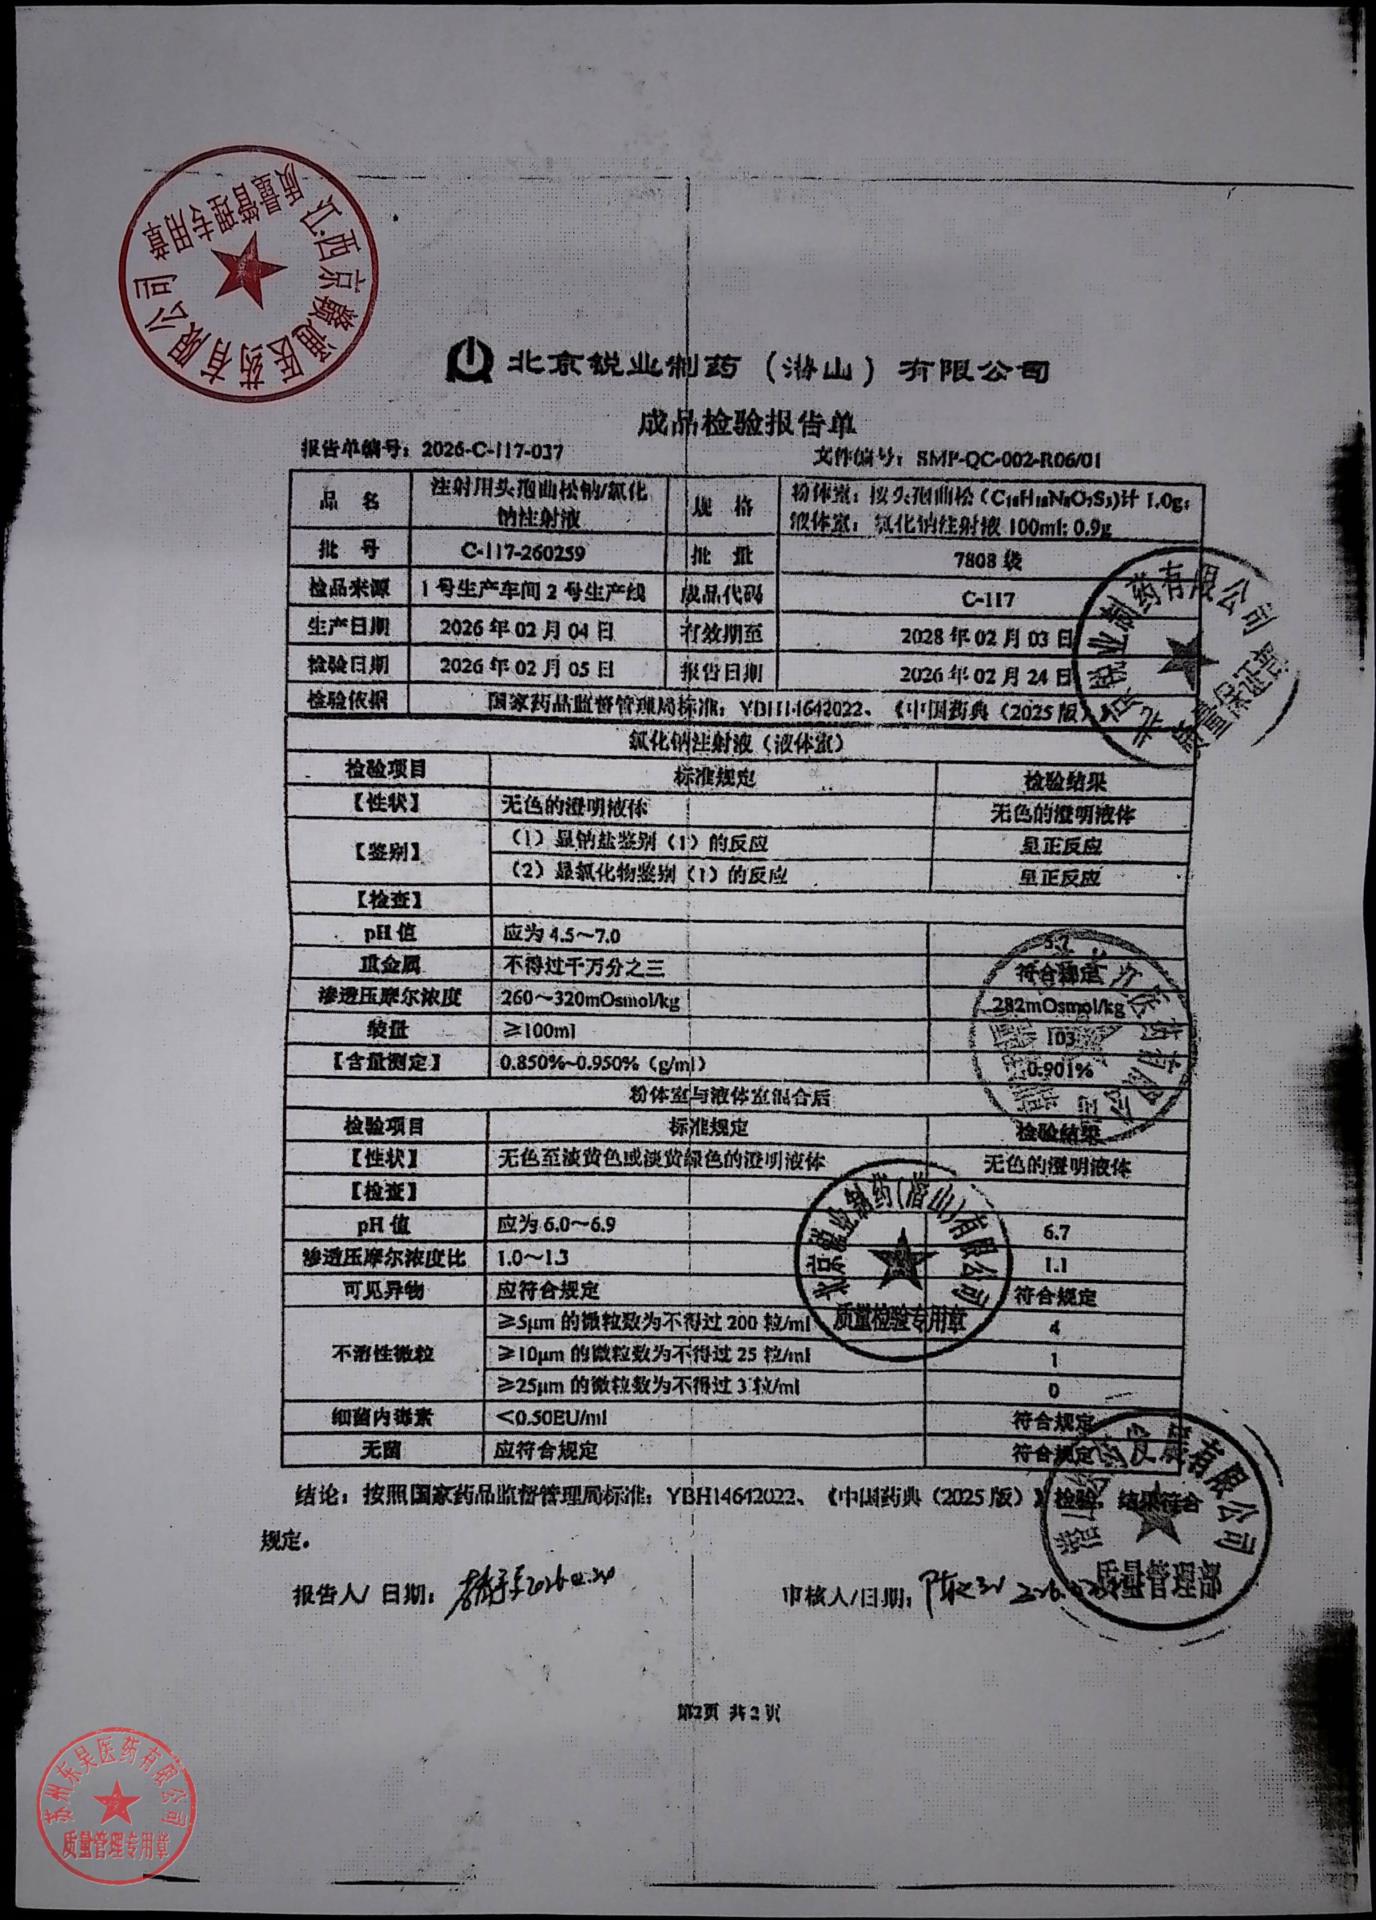 江西京赣通医药有限公司
质量管理专用章
北京锐业制药（潜山）有限公司
成品检验报告单
报告单编号：2026-C-117-037 文件编号：SMP-QC-002-R06/01
品 名 注射用头孢曲松钠/氯化钠注射液 规 格 粉体室：按头孢曲松（C₁₈H₁₈N₈O₇S₃)计 1.0g；液体室：氯化钠注射液 100ml: 0.9g
批 号 C-117-260259 批 量 7808 袋
检品来源 1 号生产车间 2 号生产线 成品代码 C-117
生产日期 2026 年 02 月 04 日 有效期至 2028 年 02 月 03 日
检验日期 2026 年 02 月 05 日 报告日期 2026 年 02 月 24 日
检验依据 国家药品监督管理局标准：YBH14642022、《中国药典（2025 版）》
氯化钠注射液（液体室）
检验项目 标准规定 检验结果
【性状】 无色的澄明液体 无色的澄明液体
【鉴别】 （1）显钠盐鉴别（1）的反应 呈正反应
（2）显氯化物鉴别（1）的反应 呈正反应
【检查】
pH 值 应为 4.5～7.0 5.7
重金属 不得过千万分之三 符合规定
渗透压摩尔浓度 260～320mOsmol/kg 282mOsmol/kg
装量 ≥100ml 103
【含量测定】 0.850%~0.950%（g/ml） 0.901%
粉体室与液体室混合后
检验项目 标准规定 检验结果
【性状】 无色至淡黄色或淡黄绿色的澄明液体 无色的澄明液体
【检查】
pH 值 应为 6.0～6.9 6.7
渗透压摩尔浓度比 1.0～1.3 1.1
可见异物 应符合规定 符合规定
不溶性微粒 ≥5μm 的微粒数为不得过 200 粒/ml 4
≥10μm 的微粒数为不得过 25 粒/ml 1
≥25μm 的微粒数为不得过 3 粒/ml 0
细菌内毒素 <0.50EU/ml 符合规定
无菌 应符合规定 符合规定
北京锐业制药有限公司
质量保证部
北京锐业制药(潜山)有限公司
质量检验专用章
结论：按照国家药品监督管理局标准：YBH14642022、《中国药典（2025 版）》检验，结果符合
规定。
报告人/ 日期： 审核人/日期：
有限公司
质量管理部
第2页 共 2 页
苏州东吴医药有限公司
质量管理专用章